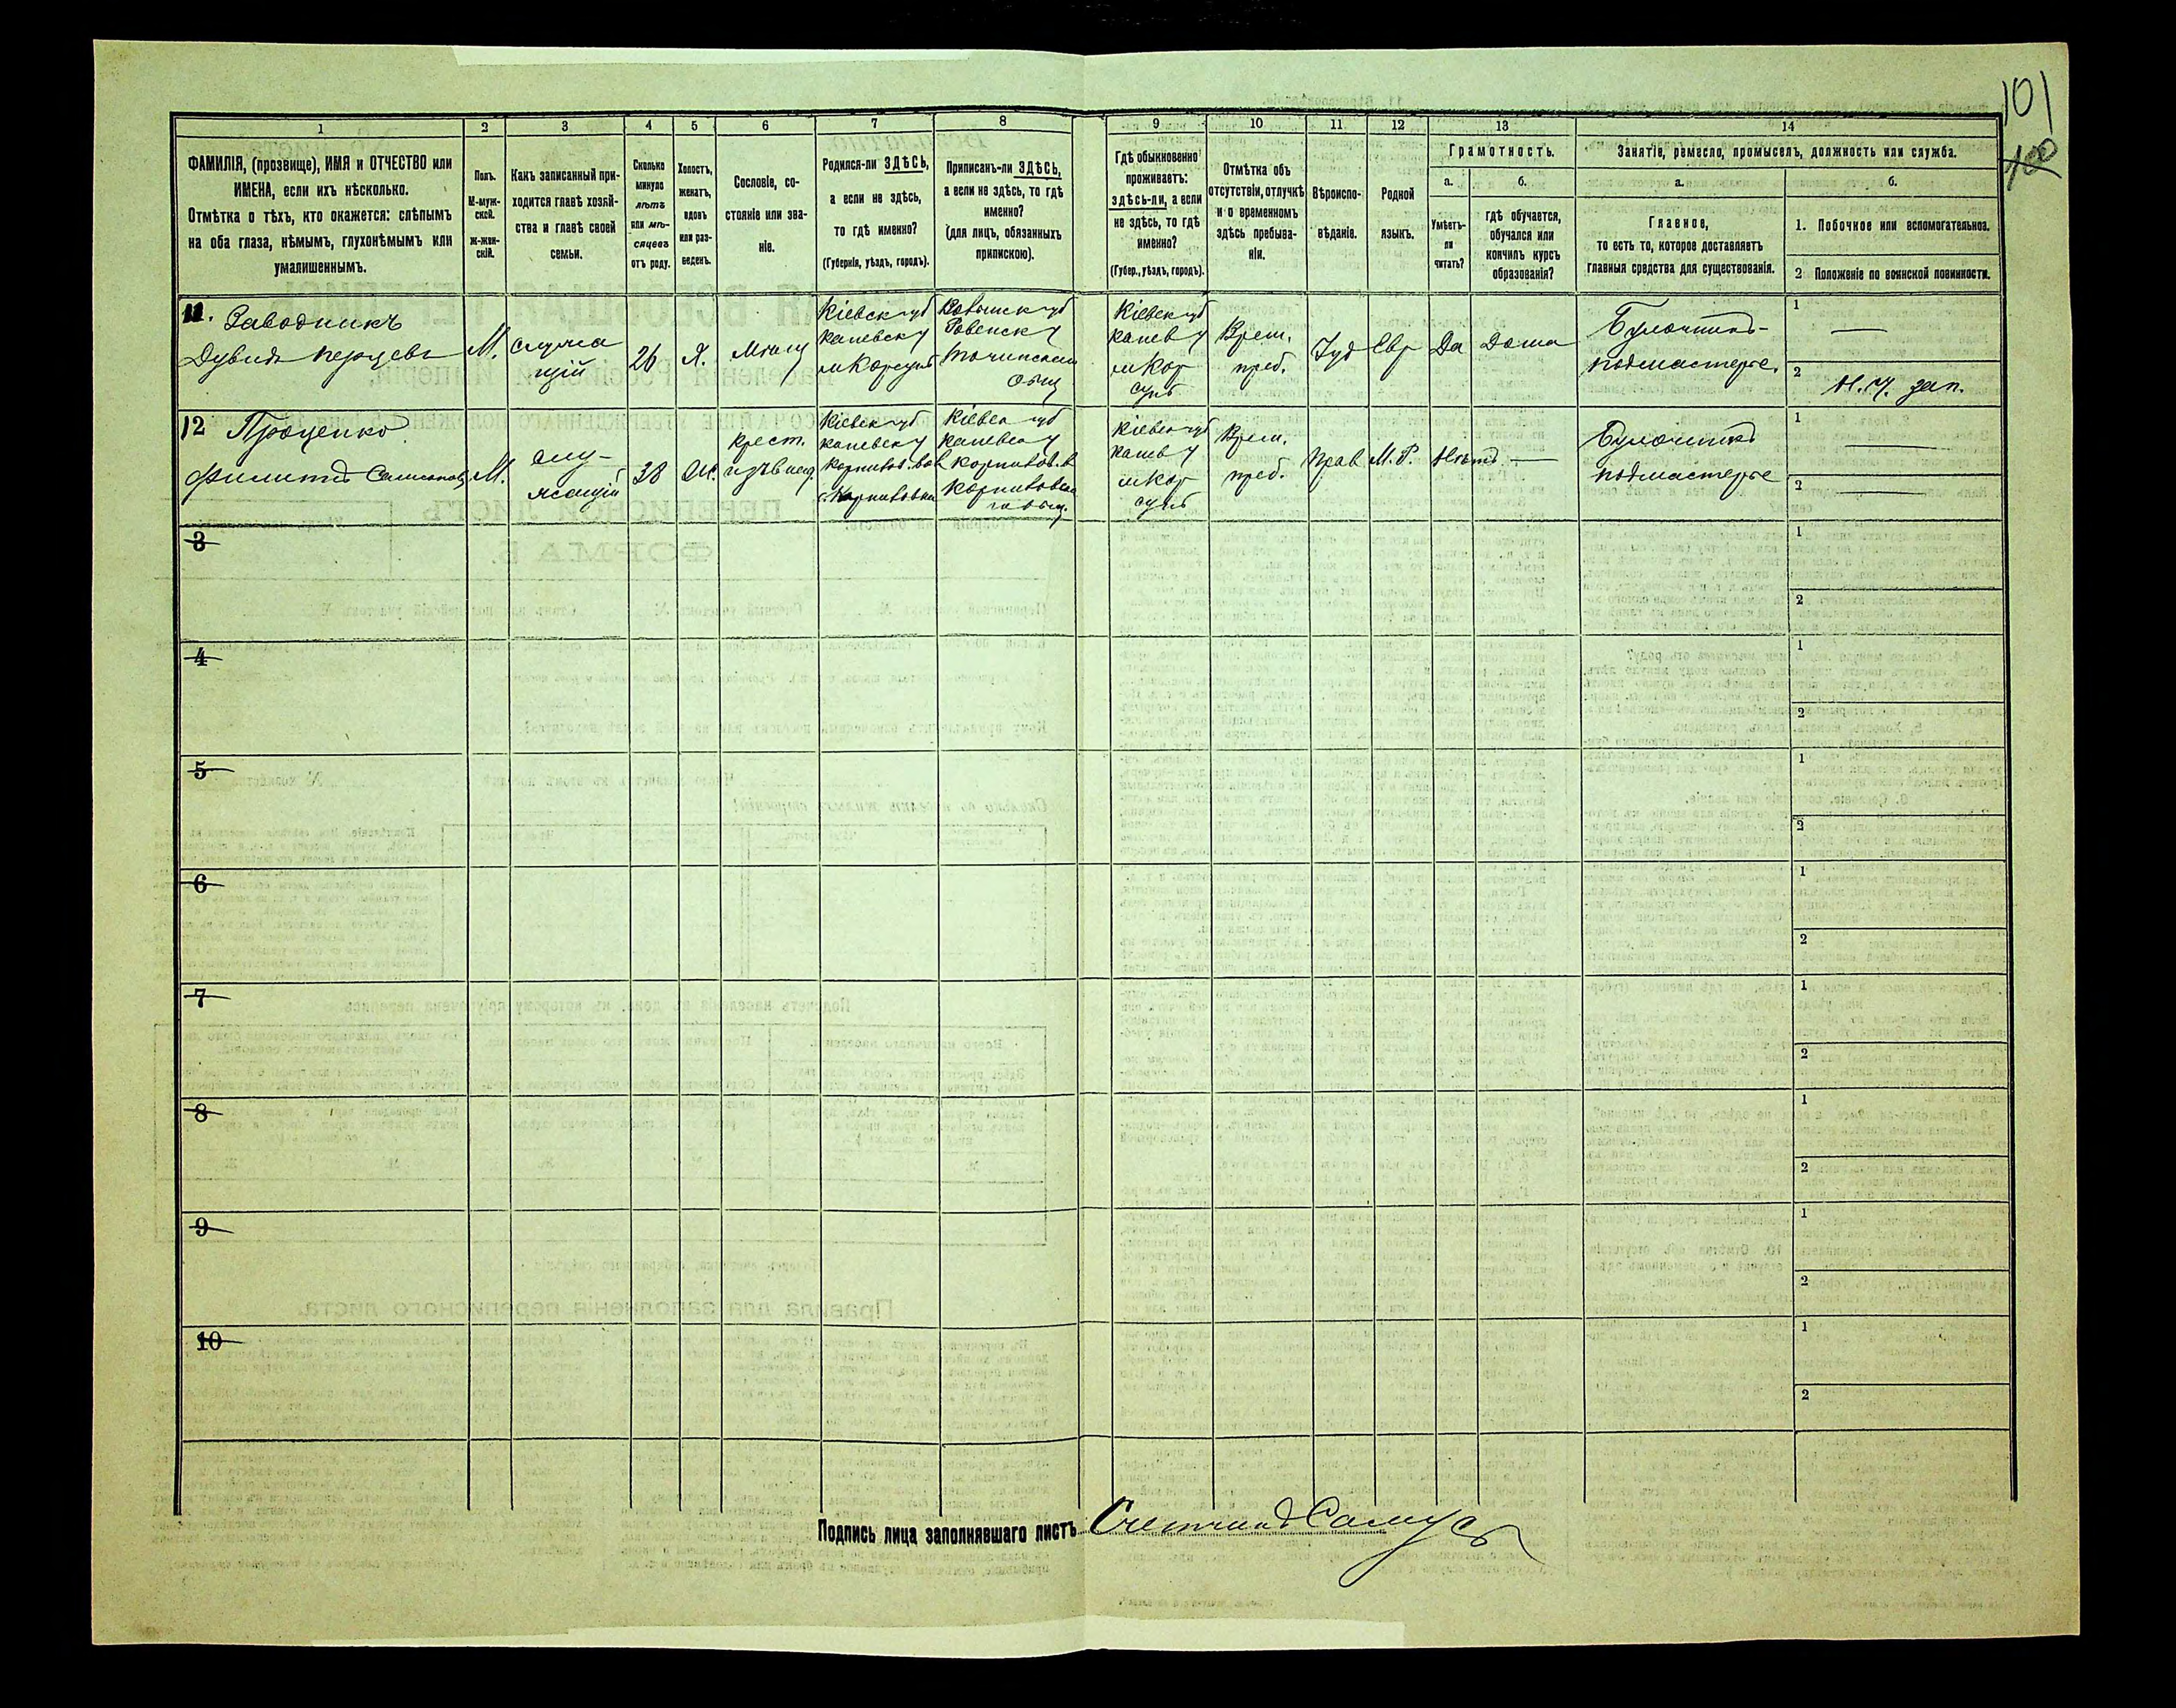 101
100
1 2 3 4 5 6 7 8 9 10 11 12 13 14
ФАМИЛІЯ, (прозвище), ИМЯ и ОТЧЕСТВО или
ИМЕНА, если ихъ нѣсколько.
Отмѣтка о тѣхъ, кто окажется: слѣпымъ
на оба глаза, нѣмымъ, глухонѣмымъ или
умалишеннымъ.
Полъ.
М-муж-
ской.
Ж-жен-
скій.
Какъ записанный при-
ходится главѣ хозяй-
ства и главѣ своей
семьи.
Сколько
минуло
лѣтъ
или мѣ-
сяцевъ
отъ роду.
Холостъ,
женатъ,
вдовъ
или раз-
веденъ.
Сословіе, со-
стояніе или зва-
ніе.
Родился-ли ЗДѢСЬ,
а если не здѣсь,
то гдѣ именно?
(Губернія, уѣздъ, городъ).
Приписанъ-ли ЗДѢСЬ,
а если не здѣсь, то гдѣ
именно?
(для лицъ, обязанныхъ
припискою).
Гдѣ обыкновенно
проживаетъ:
здѣсь-ли, а если
не здѣсь, то гдѣ
именно?
(Губер., уѣздъ, городъ).
Отмѣтка объ
отсутствіи, отлучкѣ
и о временномъ
здѣсь пребыва-
ніи.
Вѣроиспо-
вѣданіе.
Родной
языкъ.
Грамотность.
а. б.
Умѣетъ-
ли
читать?
гдѣ обучается,
обучался или
кончилъ курсъ
образованія?
Занятіе, ремесло, промыселъ, должность или служба.
а. б.
Главное,
то есть то, которое доставляетъ
главныя средства для существованія.
1. Побочное или вспомогательное.
2 Положеніе по воинской повинности.
11. Заводникъ
Дувидъ
М.
служа
щій
26
Х.
Мѣщ
Кіевск губ
каневск у
м Корсунь
Волынск губ
Ровенск у
Тучинском
общ
Кіевск губ
канев у
м Кор
сунь
Врем.
преб.
Іуд
Евр
Да
Дома
Булочникъ-
подмастерье.
1
—
2
Н. Ч. зап.
12 Проценко
Филиппъ
М.
слу-
жащій
38
Ж.
крест.
Кіевск губ
каневск у
Кіевск губ
каневск у
Кіевск губ
канев у
м Кор
сунь
Врем.
преб.
Прав
М. Р.
Нѣтъ
—
Булочникъ
подмастерье
1
—
2
—
3
1
2
4
1
2
5
1
2
6
1
2
7
1
2
8
1
2
9
1
2
10
1
2
Подпись лица заполнявшаго листъ Счетчикъ Самусь